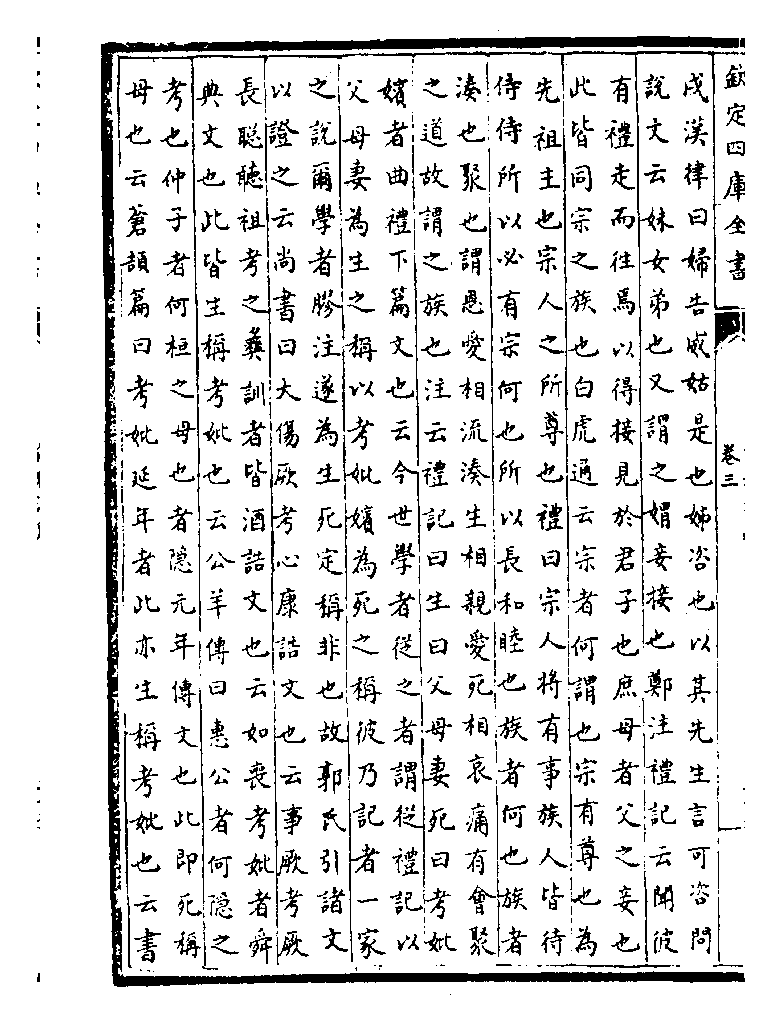 欽定四庫全書
卷三
戌漢律曰婦告威姑是也姊咨也以其先生言可咨問
說文云妹女弟也又謂之媦妾接也鄭注禮記云聞彼
有禮走而往焉以得接見於君子也庶母者父之妾也
此皆同宗之族也白虎通云宗者何謂也宗有尊也為
先祖主也宗人之所尊也禮曰宗人將有事族人皆待
侍侍所以必有宗何也所以長和睦也族者何也族者
湊也聚也謂恩愛相流湊生相親愛死相哀痛有會聚
之道故謂之族也注云禮記曰生曰父母妻死曰考妣
嬪者曲禮下篇文也云今世學者從之者謂從禮記以
父母妻為生之稱以考妣嬪為死之稱彼乃記者一家
之說爾學者膠注遂為生死定稱非也故郭氏引諸文
以證之云尚書曰大傷厥考心康誥文也云事厥考厥
長聰聽祖考之彝訓者皆酒誥文也云如喪考妣者舜
典文也此皆生稱考妣也云公羊傳曰惠公者何隱之
考也仲子者何桓之母也者隱元年傳文也此即死稱
母也云蒼頡篇曰考妣延年者此亦生稱考妣也云書